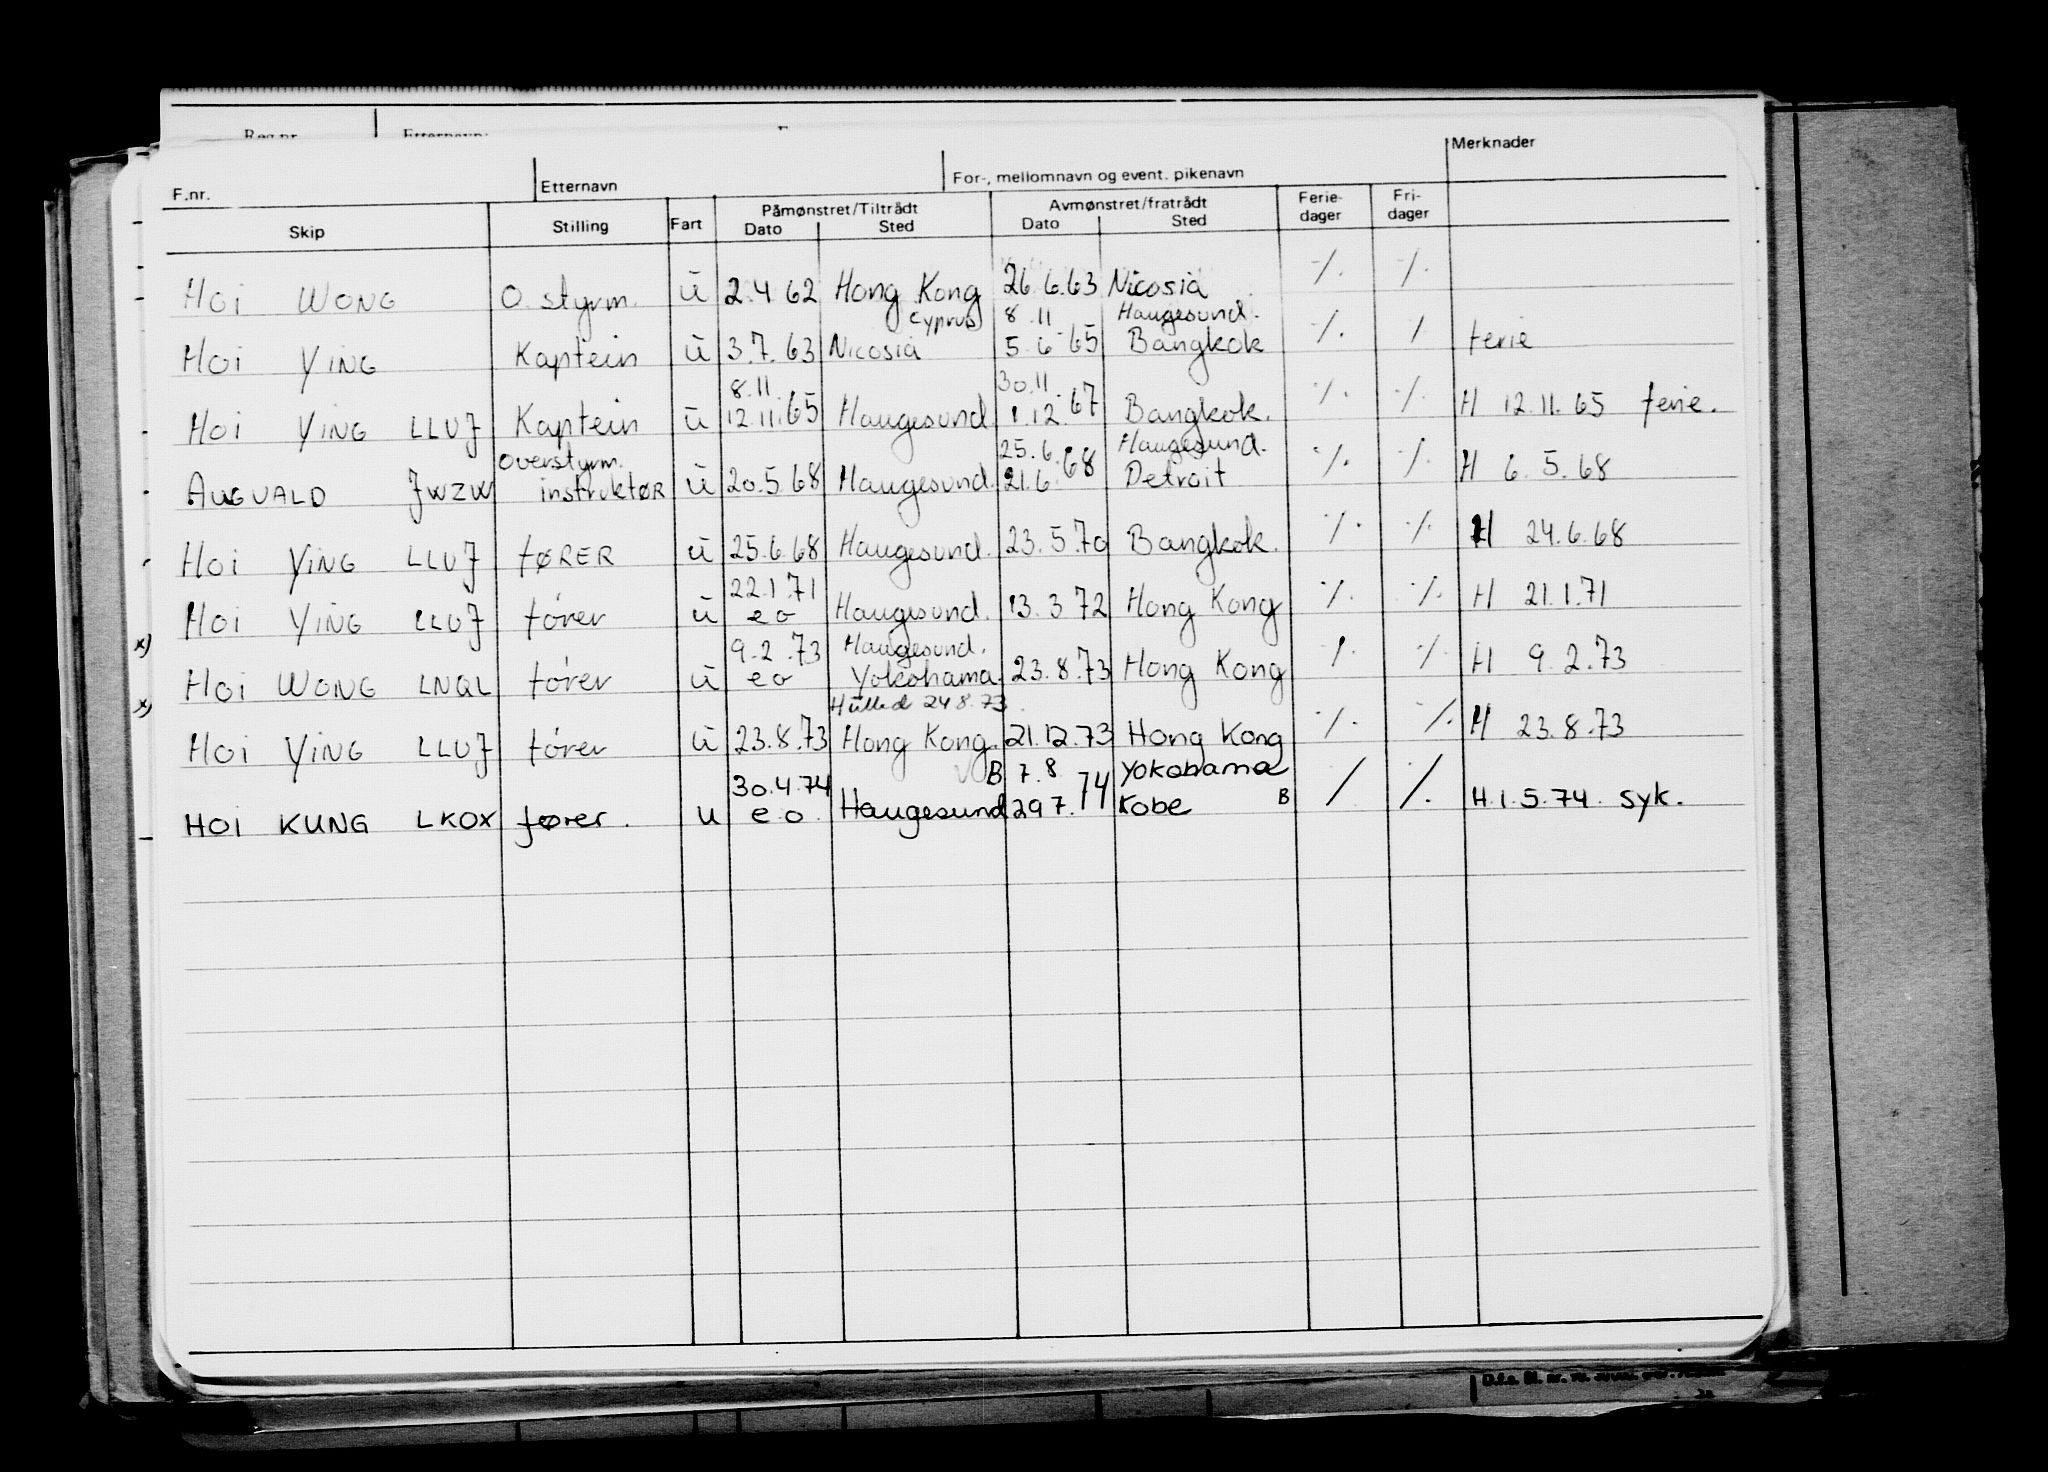 F.nr. Etternavn For-, mellomnavn og event. pikenavn Merknader
Skip Stilling Fart Påmønstret/Tiltrådt Dato Sted Avmønstret/fratrådt Dato Sted Ferie-dager Fri-dager
HOI WONG O. styrm. ū 2.4 62 Hong Kong 26.6.63 Nicosia ·/. ·/.
Cyprus 8.11 Haugesund.
HOI YING Kaptein ū 3.7.63 Nicosia 5.6.65 Bangkok ·/. / ferie
8.11 30.11
HOI YING LLUJ Kaptein ū 12.11.65 Haugesund 1.12.67 Bangkok. ·/. ·/. H 12.11.65 ferie.
Overstyrm. 25.6. Haugesund.
AUGVALD JWZW instruktØR ū 20.5.68 Haugesund 21.6.68 Detroit ·/. ·/. H 6.5.68
HOI YING LLUJ fØRER ū 25.6.68 Haugesund. 23.5.70 Bangkok. ·/. ·/. H 24.6.68
22.1.71
HOI YING LLUJ fører ū e o Haugesund. 13.3.72 Hong Kong ·/. ·/. H 21.1.71
x) 9.2.73 Haugesund.
HOI WONG LNQL fører ū e o Yokohama 23.8.73 Hong Kong /. ·/. H 9.2.73
x) 24.8.73
HOI YING LLUJ fører ū 23.8.73 Hong Kong. 21.12.73 Hong Kong ·/. ·/. H 23.8.73
30.4.74 B 7.8 Yokohama
HOI KUNG LKOX fører. u e o. Haugesund 29 7. 74 Kobe B / /. H.1.5.74. syk.